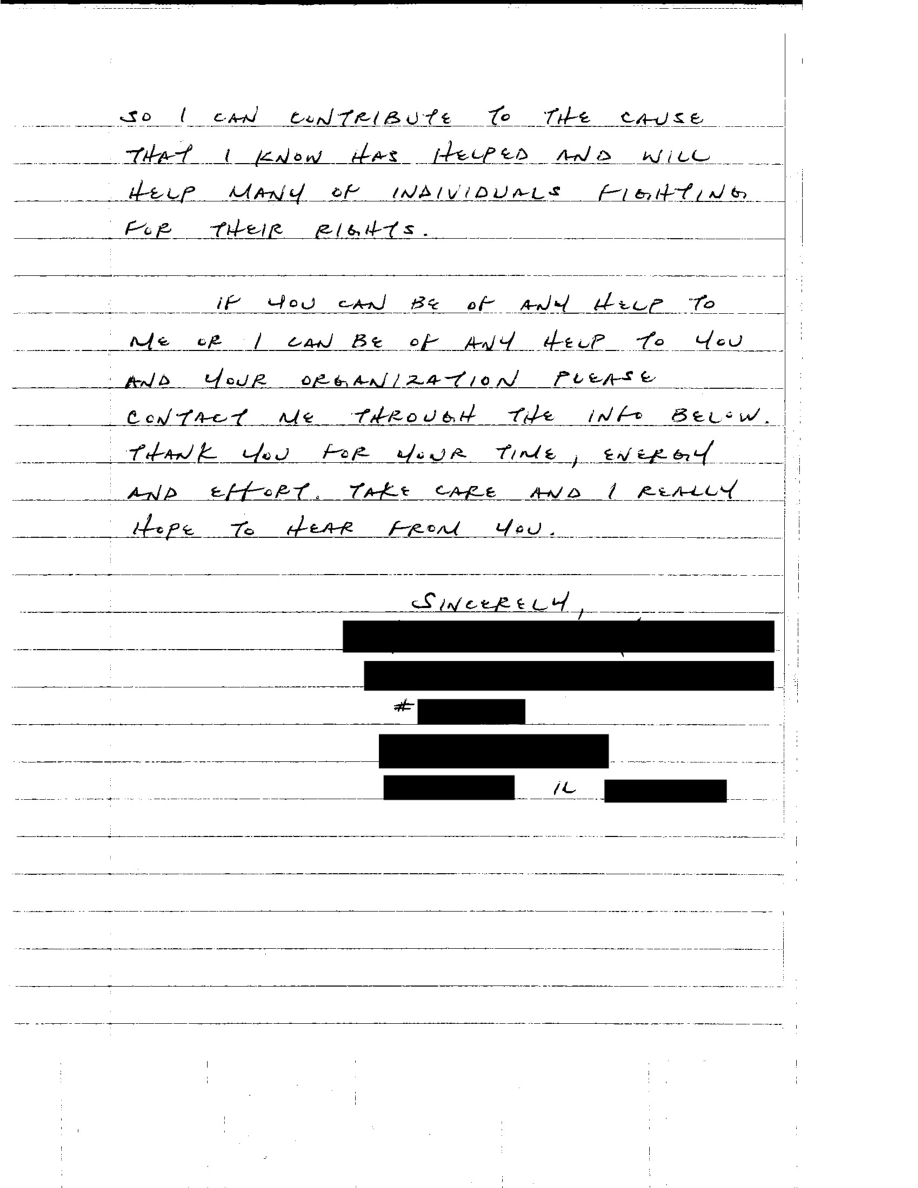 SO I CAN CONTRIBUTE TO THE CAUSE
THAT I KNOW HAS HELPED AND WILL
HELP MANY OF INDIVIDUALS FIGHTING
FOR THEIR RIGHTS.
IF YOU CAN BE OF ANY HELP TO
ME OR I CAN BE OF ANY HELP TO YOU
AND YOUR ORGANIZATION PLEASE
CONTACT ME THROUGH THE INFO BELOW.
THANK YOU FOR YOUR TIME, ENERGY
AND EFFORT. TAKE CARE AND I REALLY
HOPE TO HEAR FROM YOU.
SINCERELY,
#
IL